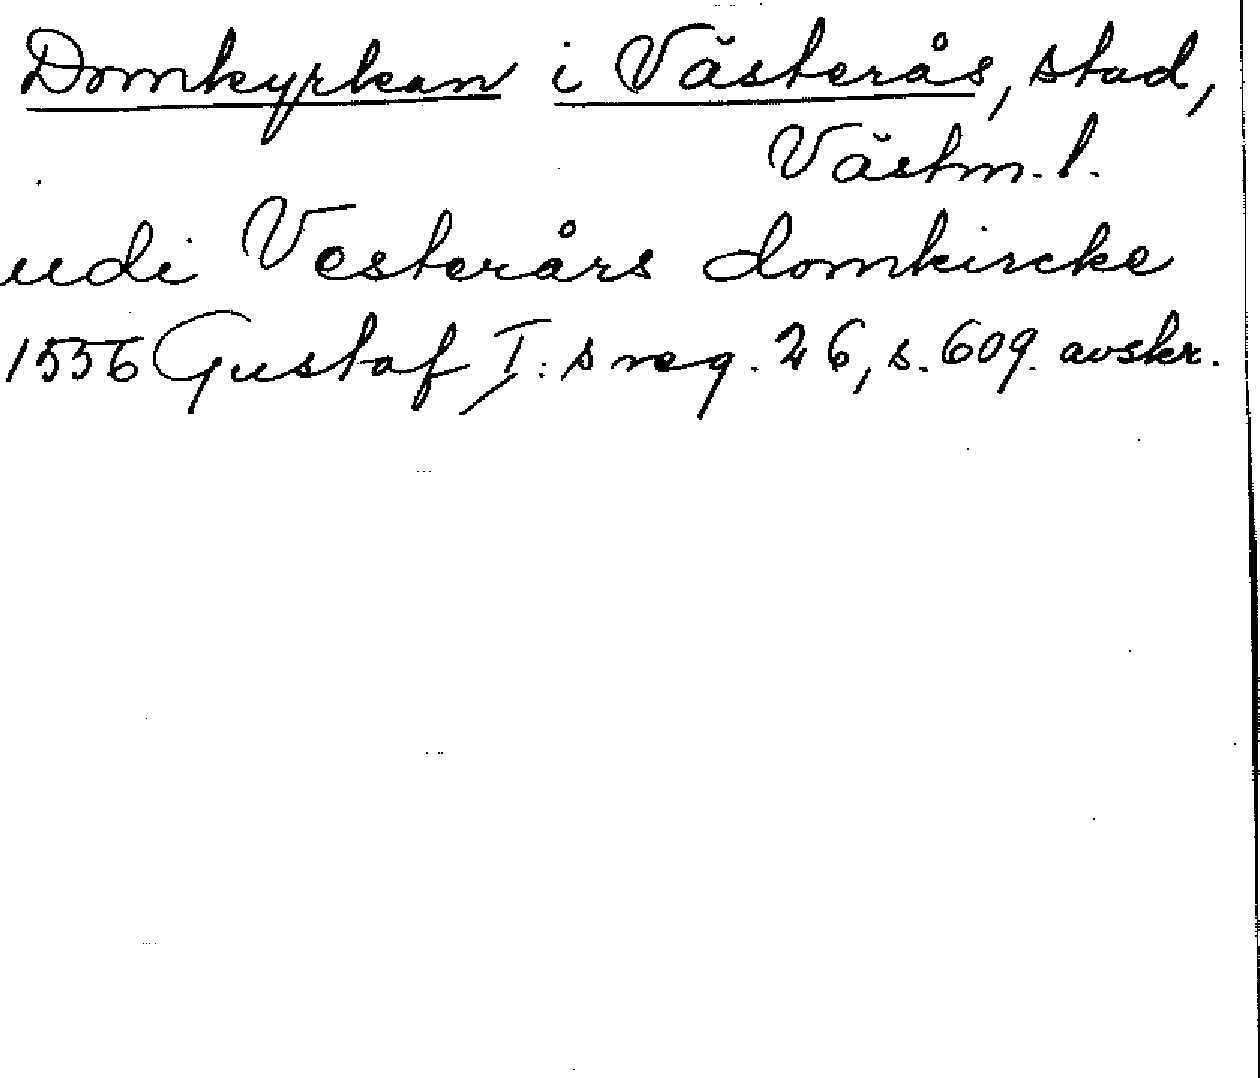 Domkyrkan i Västerås, stad,
Västm. l.
udi Vesterårs domkircke
1556 Gustaf I:s reg. 26, s. 609. avskr.